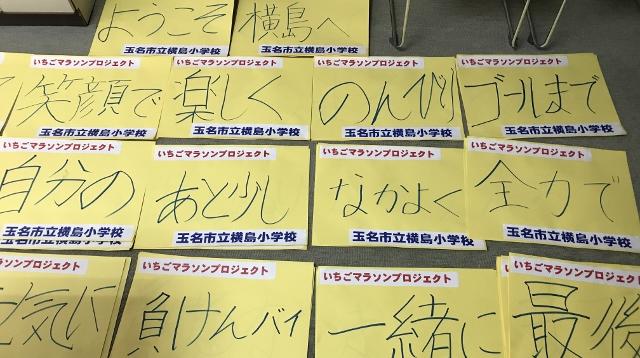 ようこそ
玉名市立横島小学校
横島へ
玉名市立横島小学校
いちごマラソンプロジェクト
笑顔で
玉名市立横島小学校
いちごマラソンプロジェクト
楽しく
玉名市立横島小学校
いちごマラソンプロジェクト
のんびり
玉名市立横島小学校
いちごマラソンプロジェクト
ゴールまで
玉名市立横島小学校
いちごマラソンプロジェクト
自分の
玉名市立横島小学校
いちごマラソンプロジェクト
あと少し
玉名市立横島小学校
いちごマラソンプロジェクト
なかよく
玉名市立横島小学校
いちごマラソンプロジェクト
全力で
玉名市立横島小学校
いちごマラソンプロジェクト
元気に
いちごマラソンプロジェクト
負けんバイ
いちごマラソンプロジェクト
一緒に
いちごマラソンプロジェクト
最後